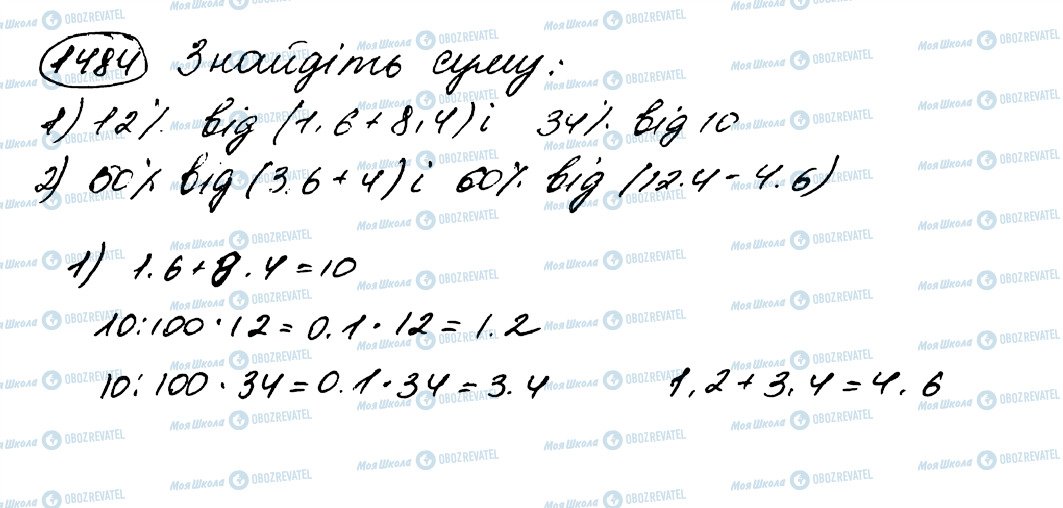 1484 Знайдіть суму:
1) 12% від (1.6+8,4) і 34% від 10
2) 60% від (3.6+4) і 60% від (12.4-4.6)
1) 1.6+8.4=10
10:100·12=0.1·12=1.2
10:100·34=0.1·34=3.4 1,2+3,4=4.6